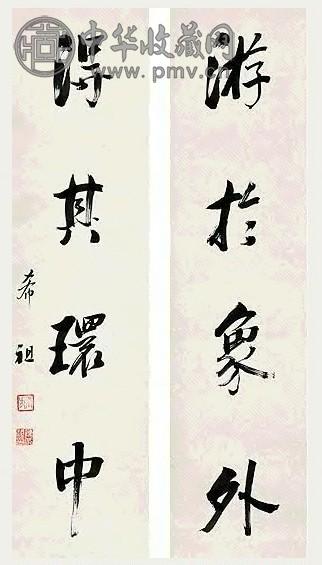 中华收藏网
www.pmv.cn
游於象外
得其環中
希祖